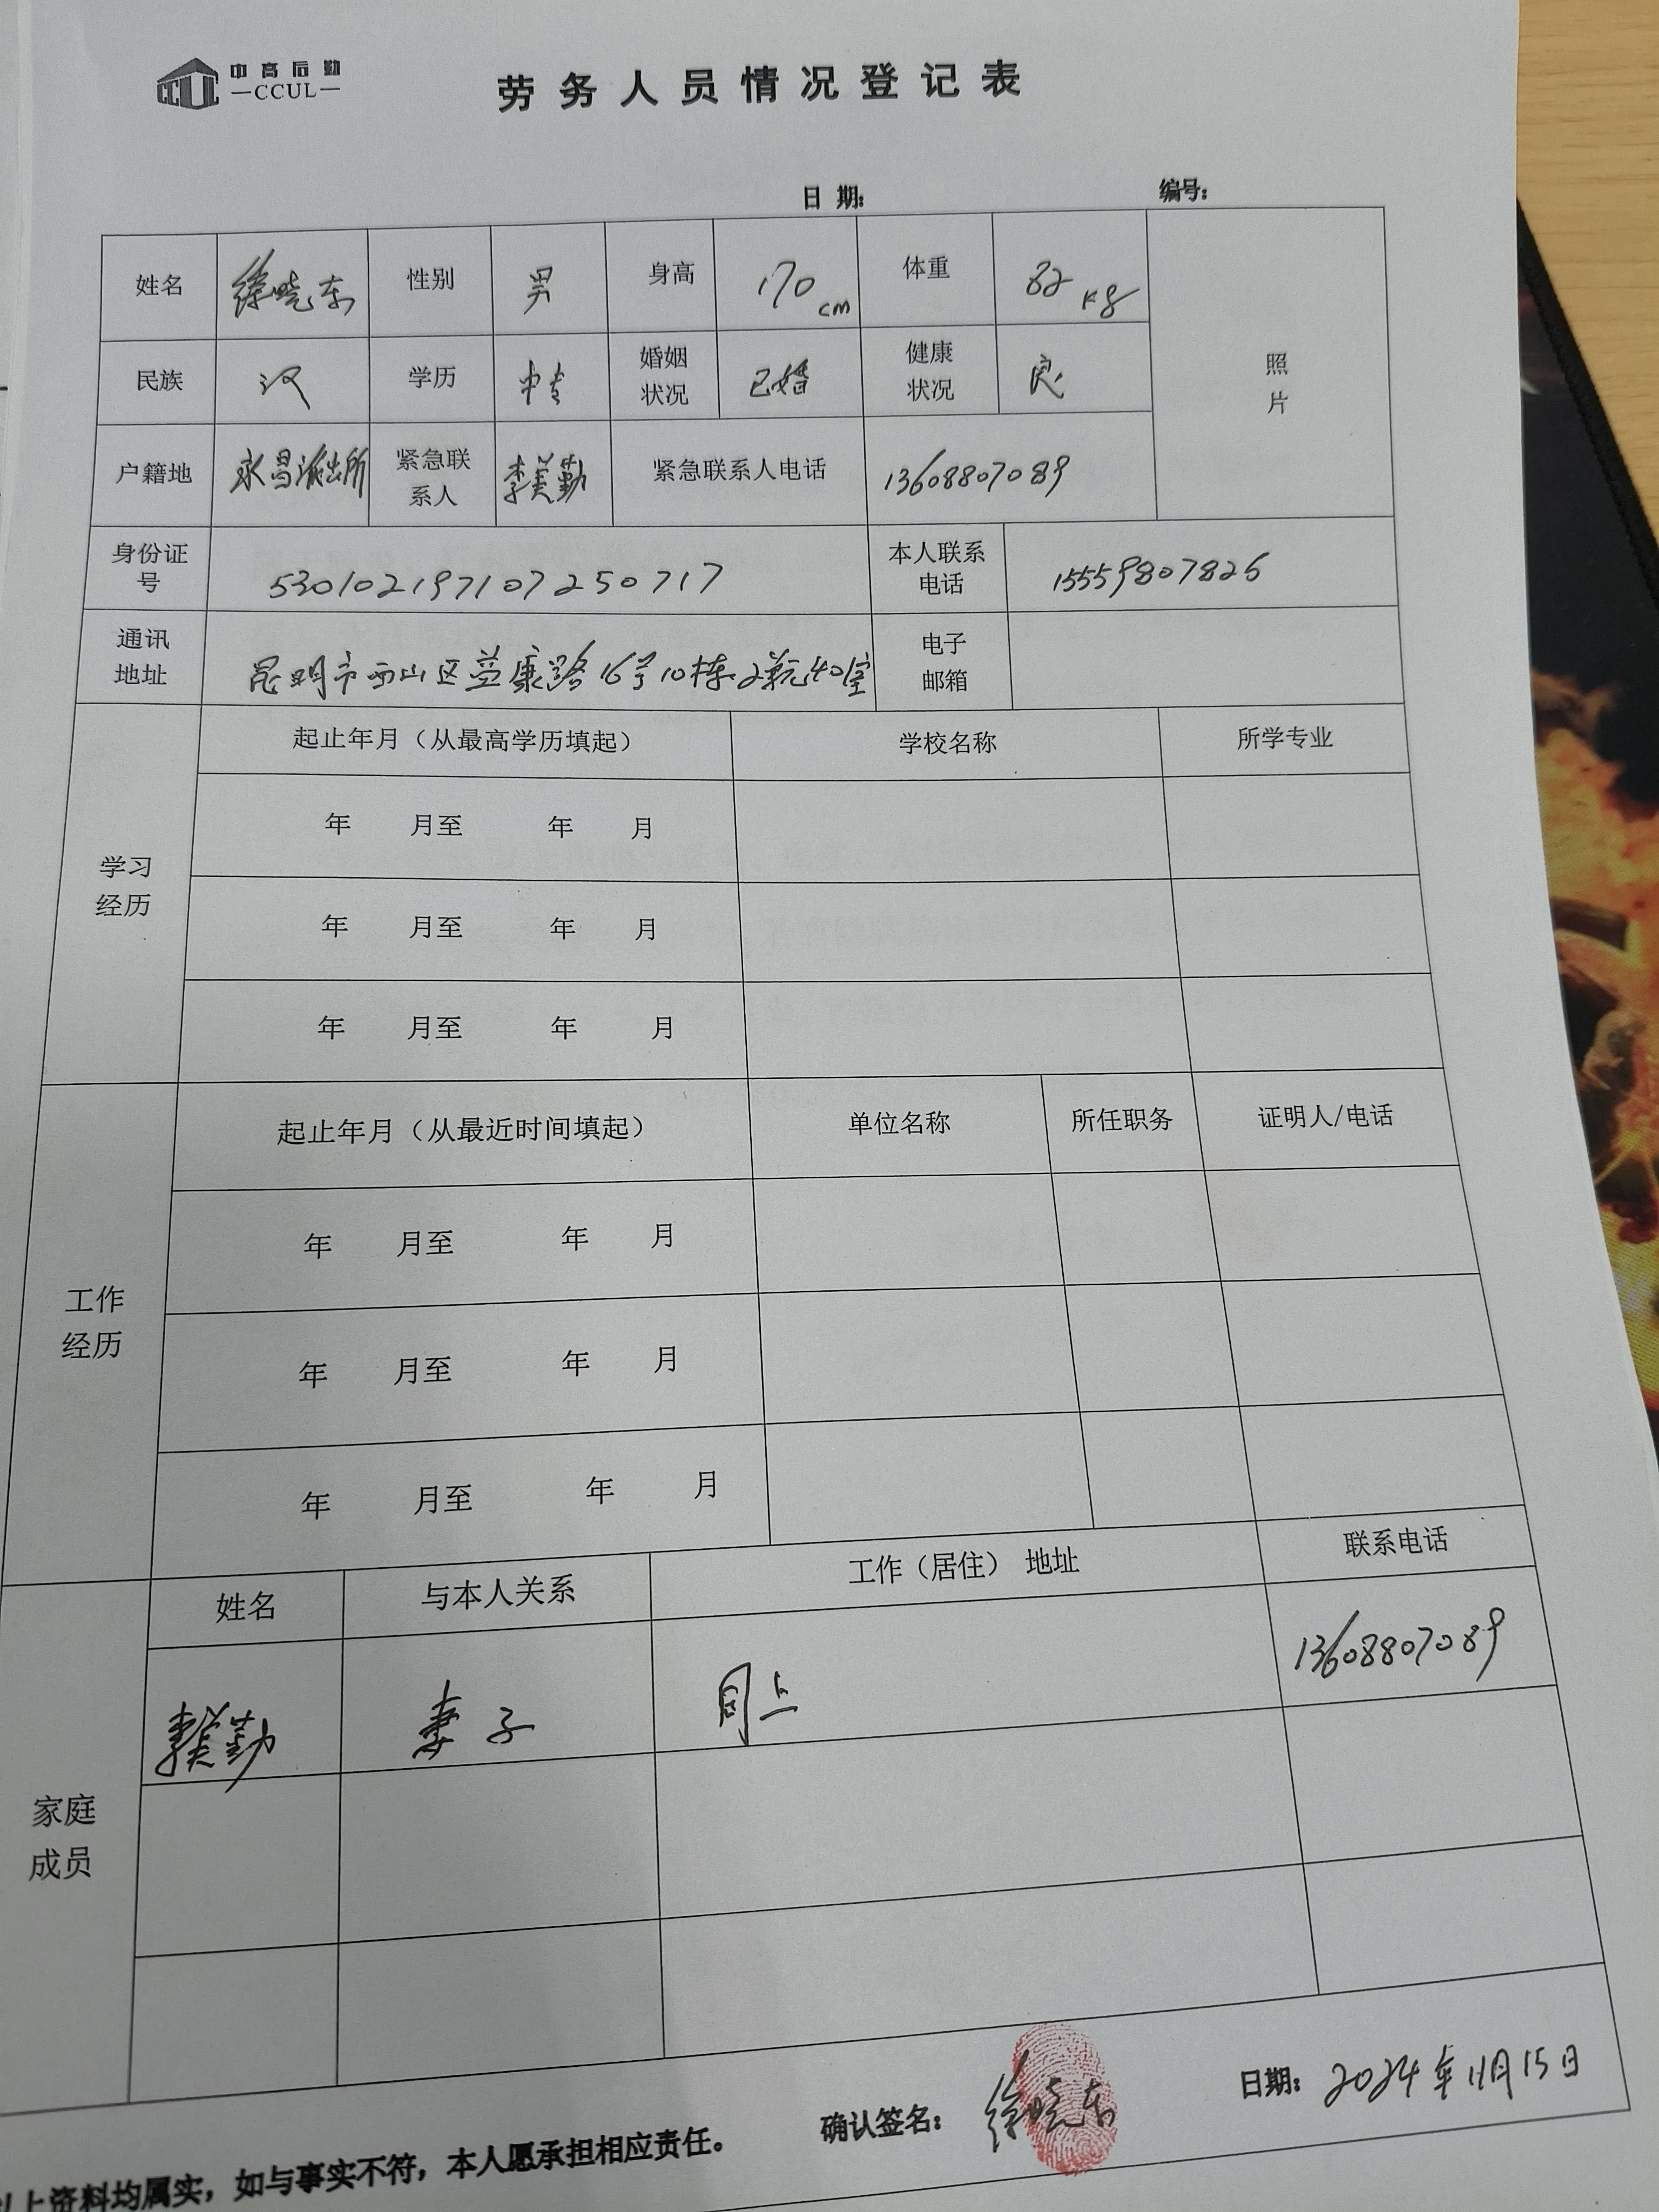 中高后勤
—CCUL—
劳务人员情况登记表
日 期: 编号:
姓名 徐晓东 性别 男 身高 170cm 体重 82kg 照片
民族 汉 学历 中专 婚姻状况 已婚 健康状况 良
户籍地 永昌派出所 紧急联系人 李美勤 紧急联系人电话 13608807089
身份证号 530102197107250717 本人联系电话 15559807826
通讯地址 昆明市西山区益康路16号10栋2单元402室 电子邮箱
学习经历 起止年月（从最高学历填起） 学校名称 所学专业
年 月至 年 月
年 月至 年 月
年 月至 年 月
工作经历 起止年月（从最近时间填起） 单位名称 所任职务 证明人/电话
年 月至 年 月
年 月至 年 月
年 月至 年 月
家庭成员 姓名 与本人关系 工作（居住） 地址 联系电话
李美勤 妻子 同上 13608807089
以上资料均属实，如与事实不符，本人愿承担相应责任。 确认签名： 徐晓东 日期： 2024年11月15日